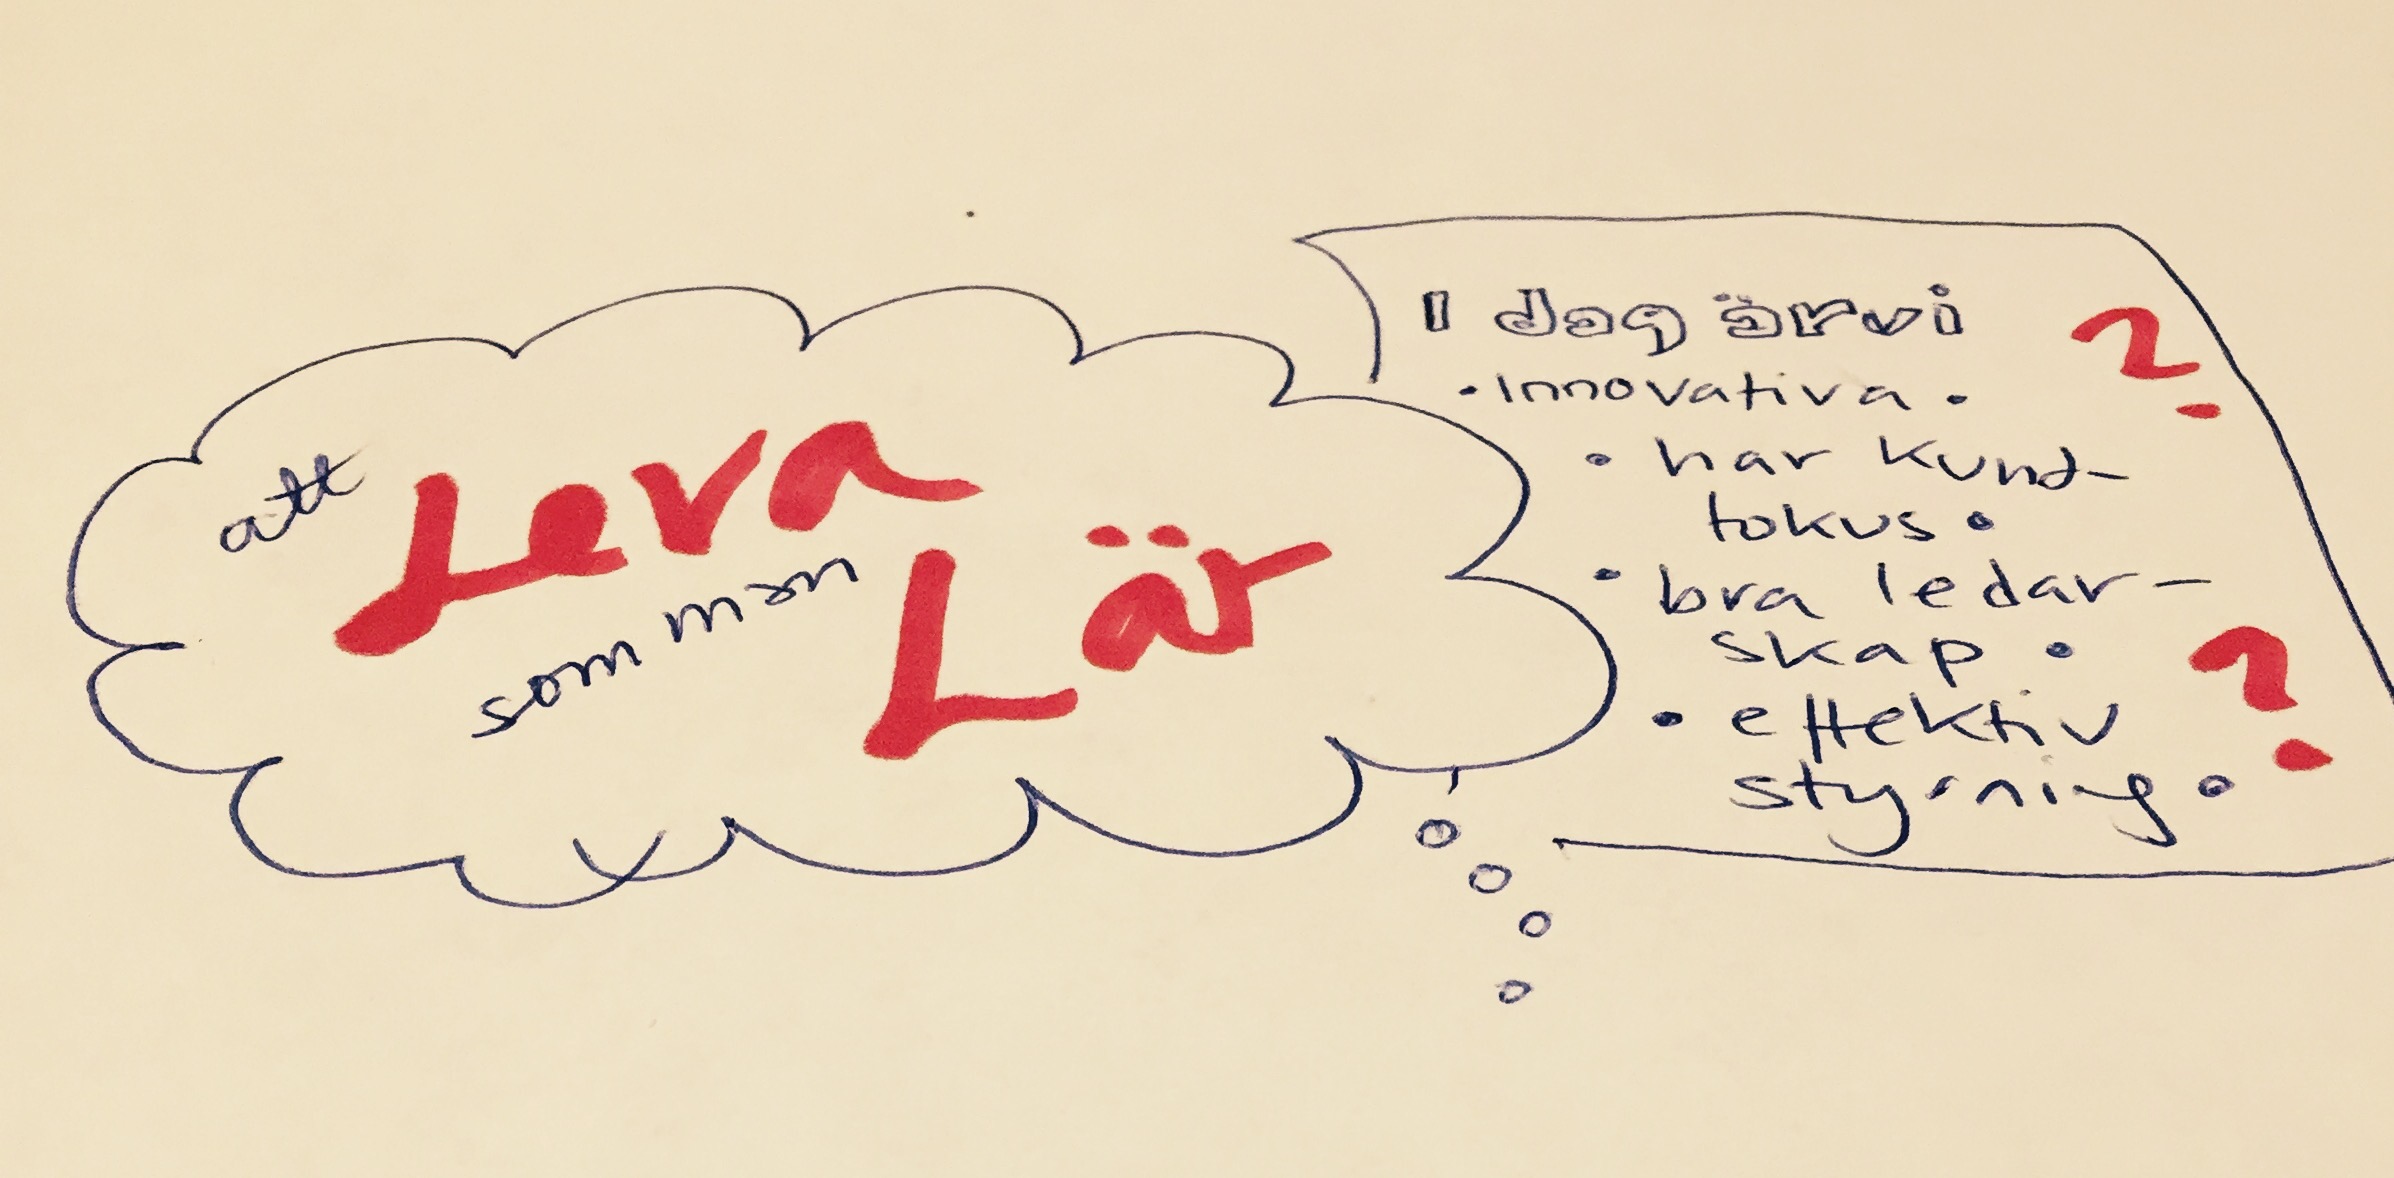 att Leva
som man Lär
I dag är vi ?
• Innovativa •
• har kund-
fokus •
• bra ledar-
skap •
• effektiv ?
styrning •